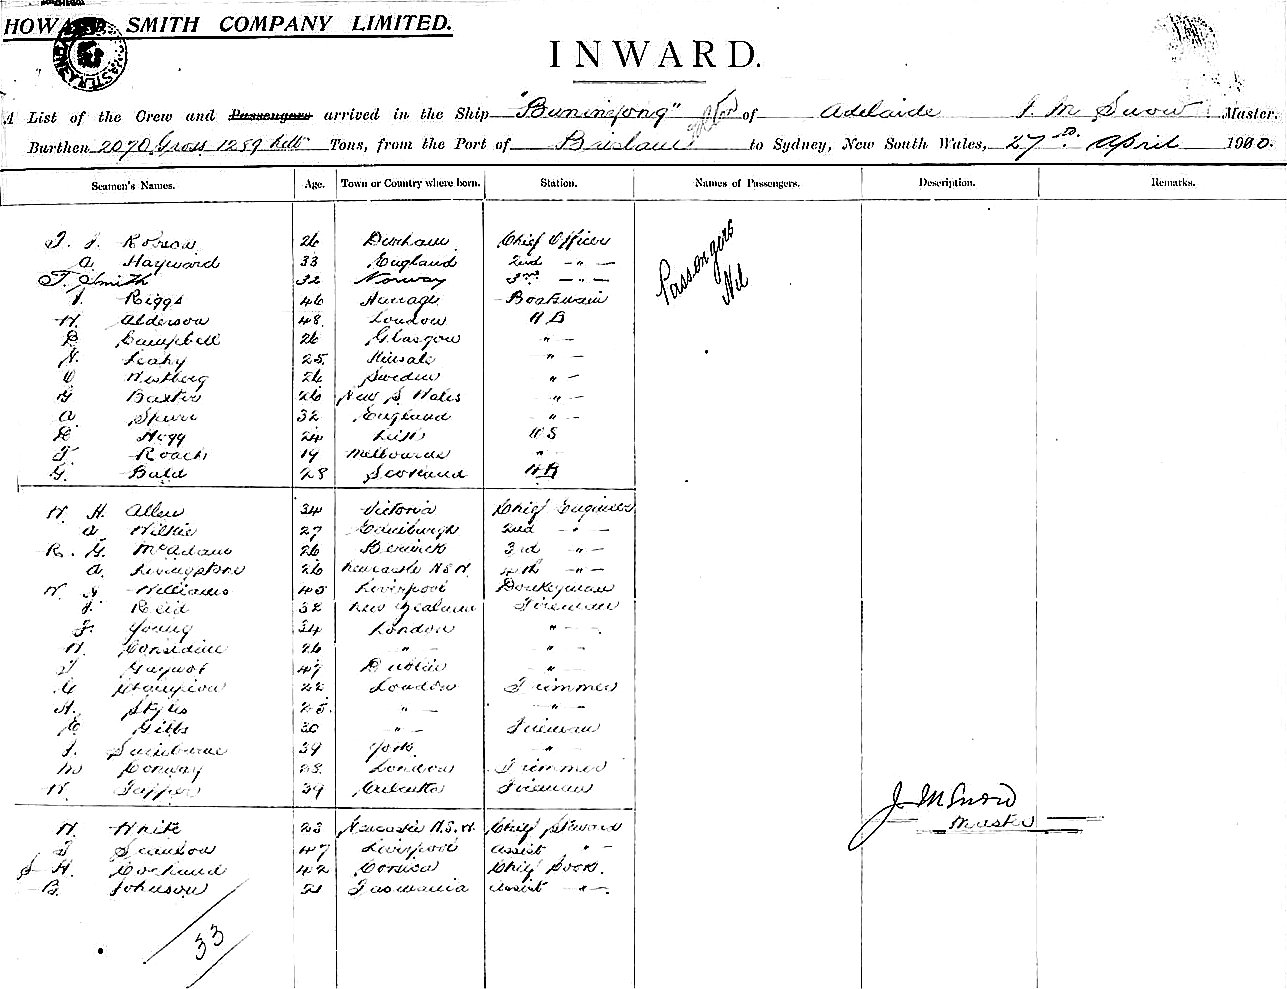 HOWARD SMITH COMPANY LIMITED.
INWARD.
A List of the Crew and Passengers arrived in the Ship "Buninyong" of Adelaide J. M Snow Master.
Burthen 2070 Gross 1289 Nett Tons, from the Port of Brisbane to Sydney, New South Wales, 27th April 1900.
Seamen's Names. Age. Town or Country where born. Station. Names of Passengers. Description. Remarks.
Robson 26 Durham Chief Officer
A Hayward 33 England 2nd " 
T. Smith 32 Norway 3rd "
Passengers
Nil
J. Riggs 46 Boatswain
H. Alderson 48 London AB
D Campbell 26 Glasgow "
N. Leahy 25 Kinsale "
Westberg 26 Sweden "
G Baxter 26 New S. Wales "
A 32 England "
Hogg 24 Leith OS
T Roach 19 Melbourne "
G. Bald 28 Scotland AB
W H. Allen 34 Victoria Chief Engineer
A. Wilkie 27 Edinburgh 2nd "
R. G. McAdam 26 Berwick 3rd "
A. Livingstone 26 Newcastle N.S.W. 4th "
W J Williams 45 Liverpool Donkeyman
J. Reid 32 New Zealand Fireman
J. Young 34 London "
Considine 26 " "
47 Dublin "
C Champion 22 London Trimmer
A. Styles 25 " "
E Gibbs 30 " Fireman
J. 39 York "
M Conway 28 London Trimmer
W. Tapper 39 Calcutta Fireman
W. White 23 Newcastle N.S.W. Chief Steward
J Scanlon 47 Liverpool Assist "
H. 42 Corsica Chief Cook.
B. Johnson 21 Tasmania Assist "
J. M Snow
Master
33